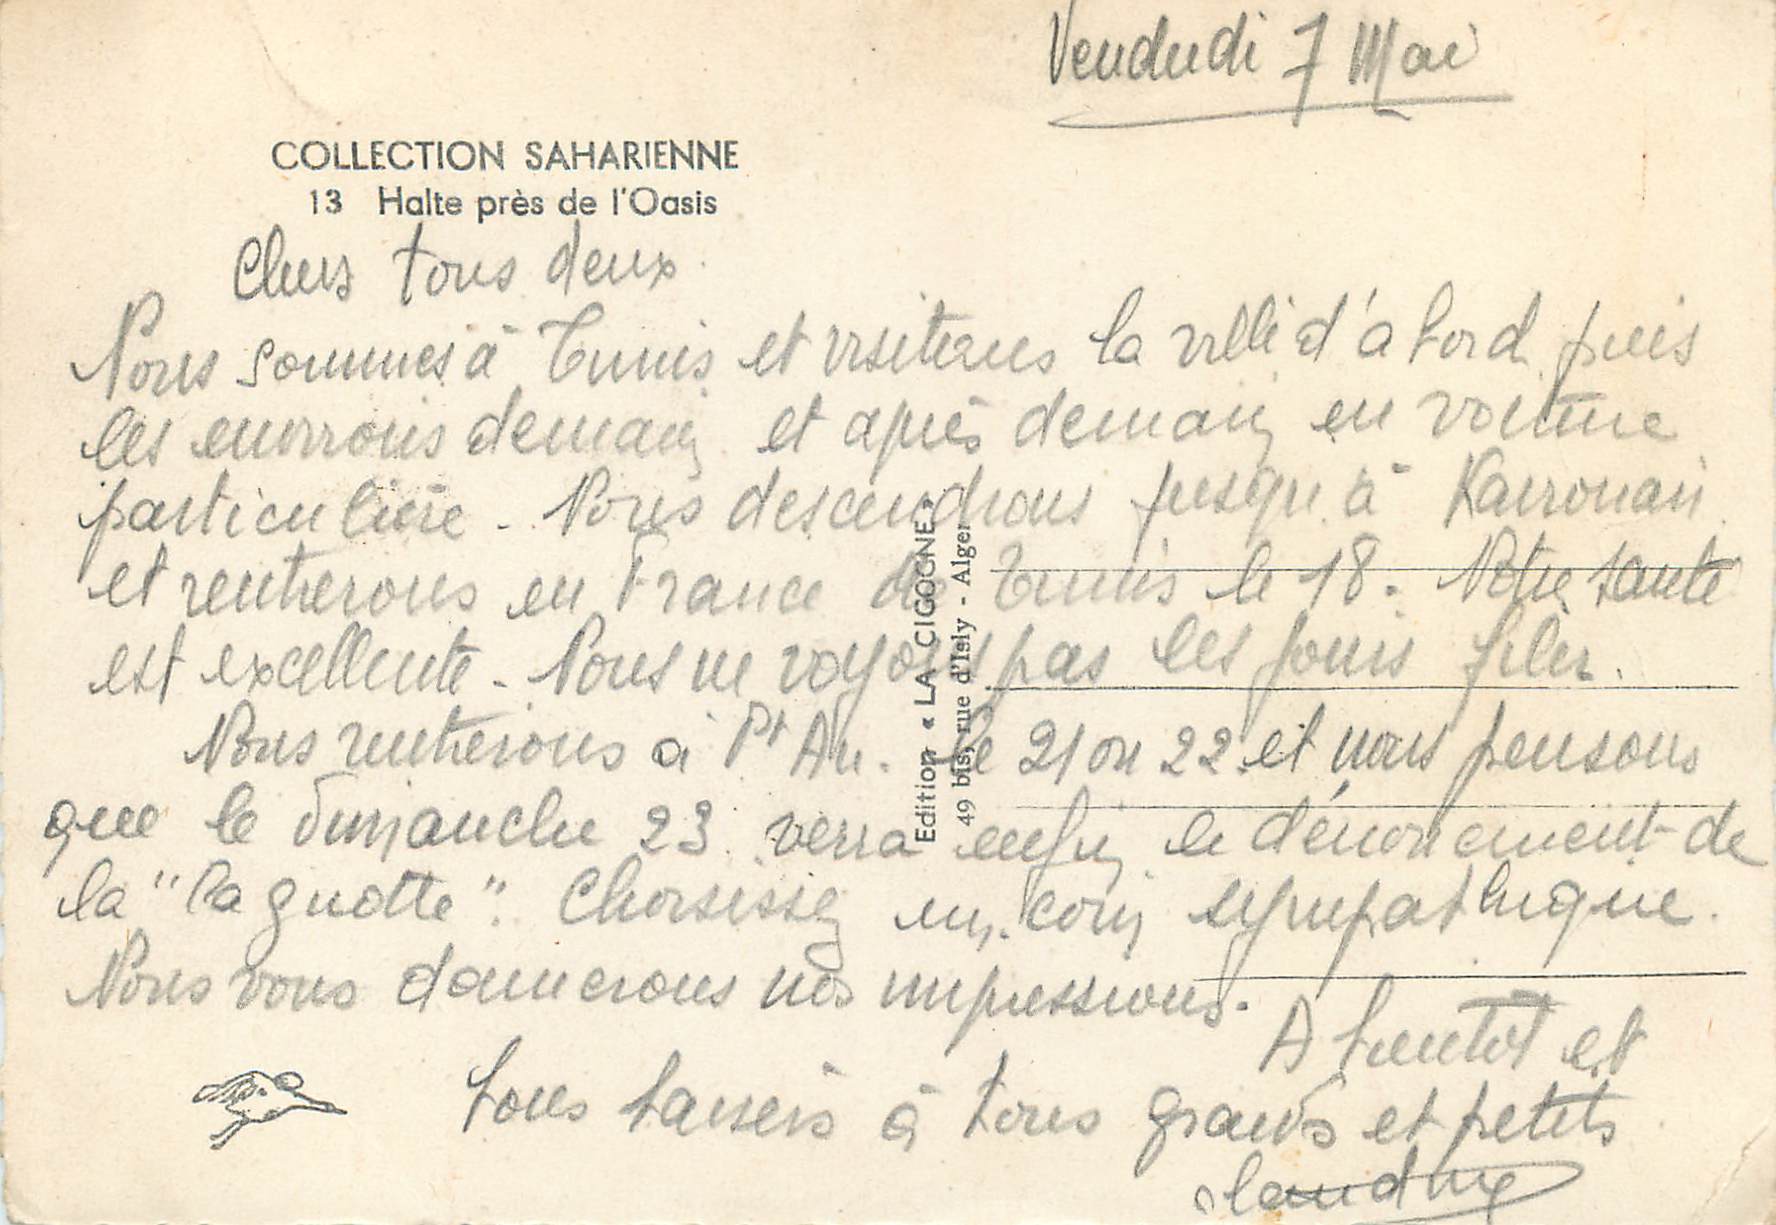 Vendredi 7 Mai
COLLECTION SAHARIENNE
13 Halte près de l'Oasis
Chers tous deux.
Nous sommes à Tunis et visiterons la ville d'abord puis
les environs demain et après demain en voiture
particulière - Nous descendrons jusqu'à Kairouan
et rentrerons en France de Tunis le 18. Notre santé
est excellente - Nous ne voyons pas les jours filer.
Nous rentrerons à Pt Au. le 21 ou 22 et nous pensons
que le Dimanche 23 verra enfin le dénouement de
la "Cagnotte". Choisissez un coin sympathique.
Nous vous donnerons nos impressions.
A bientôt et
bons baisers à tous grands et petits
Edition « LA CIGOGNE »
49 bis, rue d'Isly - Alger